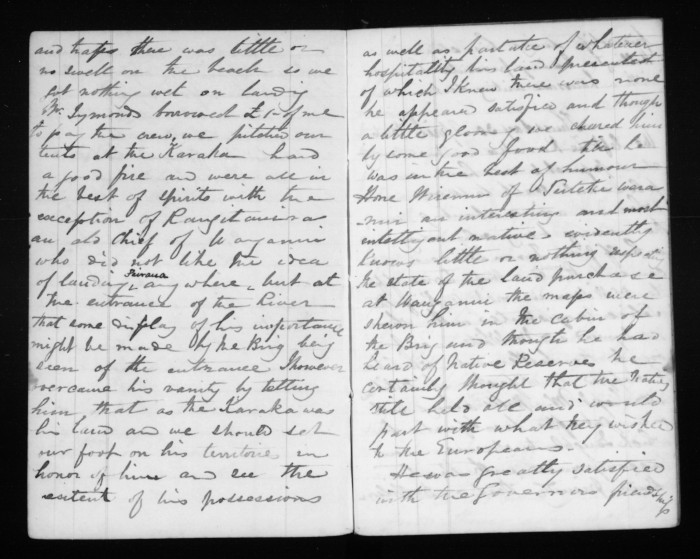 and there was little or
no swell on the beach so we
got nothing wet on landing
Mr. Symonds borrowed £ of me
to pay the crew, we pitched our
tents at the Karaka had
a good fire and were all in
the best of spirits with the
exception of Rangitauira
an old chief of Wanganui
who did not like the idea
of landing Pairaua any where, but at
the entrance of the River
that some display of his importance
might be made by the Brig being
seen of the entrance I however
overcame his vanity by telling
him, that as the Karaka was
his land and we should set
our foot on his territoire in
honor of him and see the
extent of his possessions
as well as partake of whatever
hospitality his land presented
of which I knew there was none
he appeared satisfied and though
a little gloomy we cheered him
by some good food he
was in the best of humour
Hone Wiremu of
an interesting and most
intelligent native evidently
knows little or nothing
the state of the land purchase
at Wanganui the maps were
shewn him in the cabin of
the Brig and though he had
heard of Native Reserves he
certainly thought that the Native
title held all and would
part with what they wished
to the Europeans.
He was greatly satisfied
with the Governors friendship